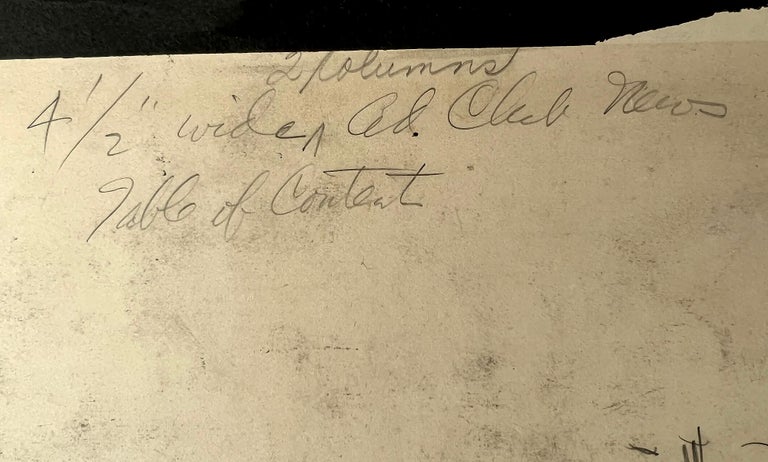 2 columns
4 1/2" wide ^ Ad. Club News
Table of Content